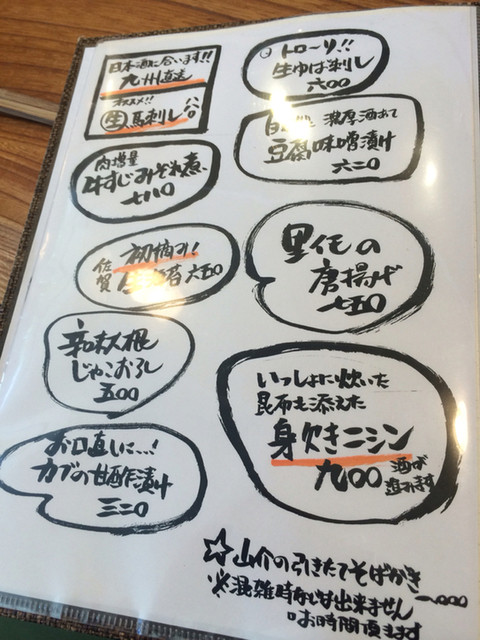 日本酒に合います!!
九州直送
オススメ!!
生馬刺し
トローリ!!
生ゆば刺し
六〇〇
濃厚酒あて
豆腐味噌漬け
六二〇
肉増量
牛すじみぞれ煮
七八〇
初摘み!
佐賀
海苔 六五〇
里芋の
唐揚げ
七五〇
辛味大根
じゃこおろし
五〇〇
いっしょに炊いた
昆布も添えた
身欠きニシン
九〇〇
酒が
進みます
お口直しに…!
カブの甘酢漬け
三二〇
☆山介の引きたてそばがき
一、〇〇〇
※混雑時などは出来ません
お時間頂きます